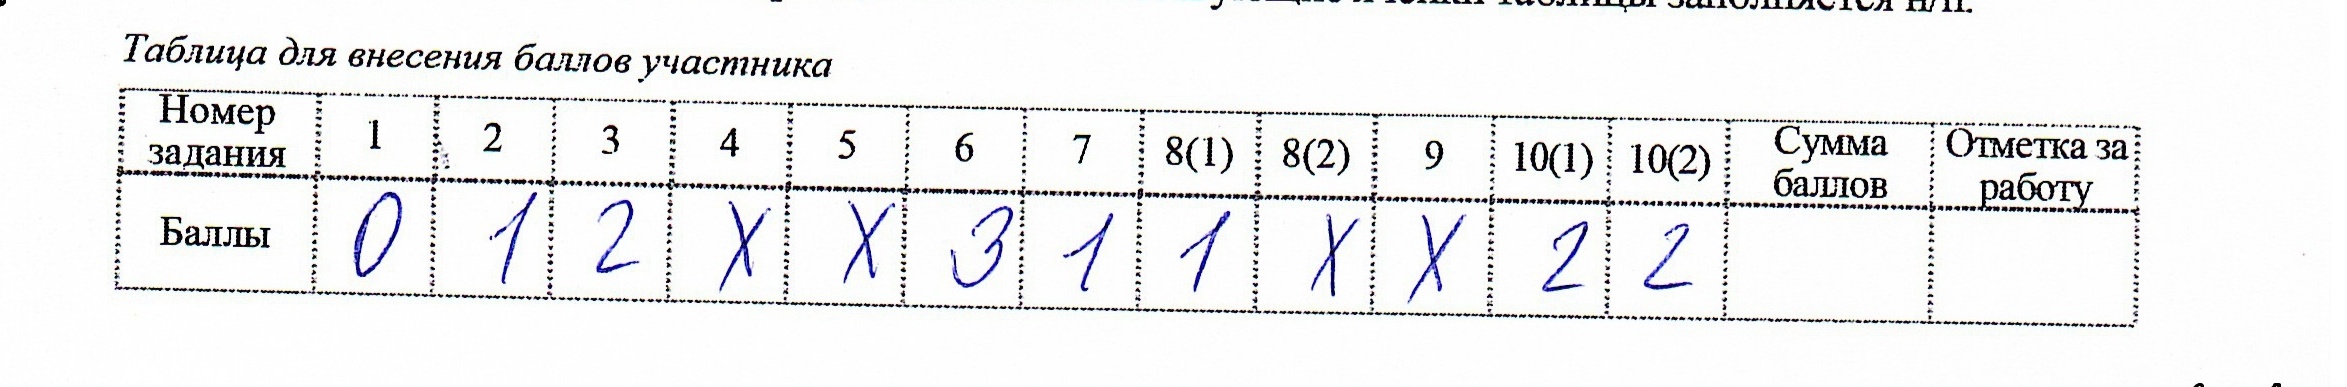 таблицы заполняется н/п.
Таблица для внесения баллов участника
Номер задания 1 2 3 4 5 6 7 8(1) 8(2) 9 10(1) 10(2) Сумма баллов Отметка за работу
Баллы 0 1 2 X X 3 1 1 X X 2 2